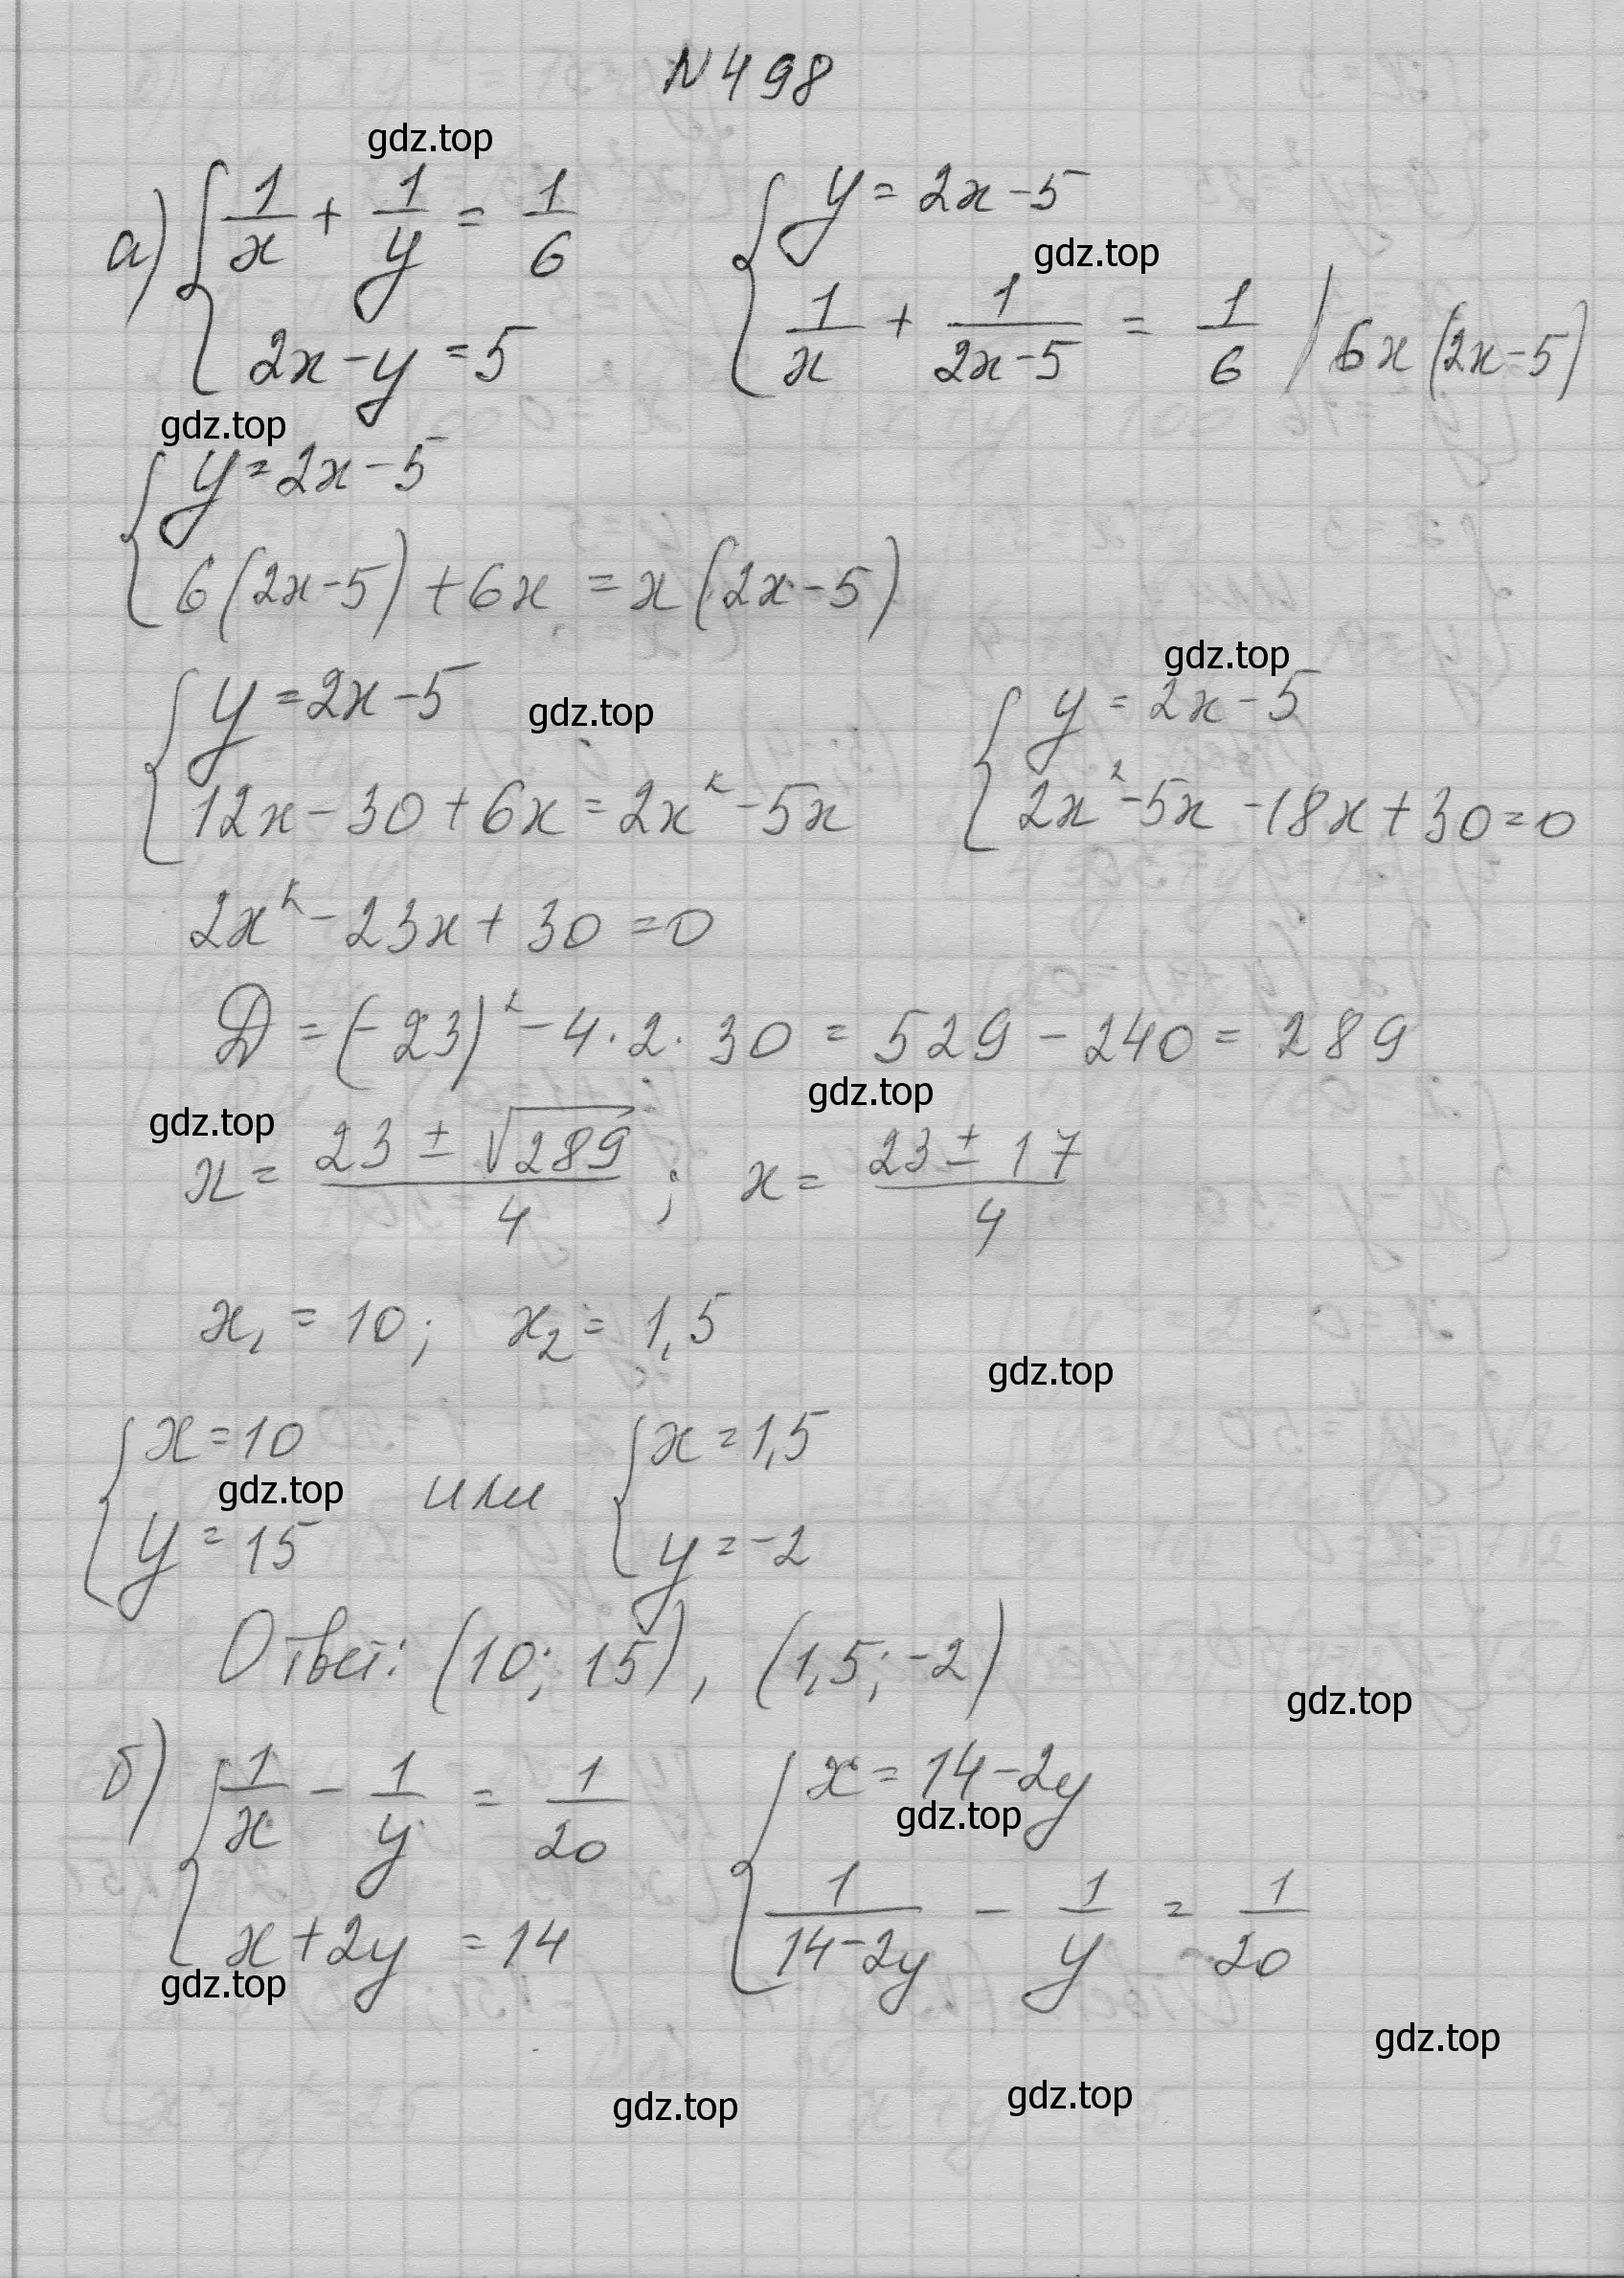 N 498
gdz.top
а) { 1/x + 1/y = 1/6    { y = 2x - 5
gdz.top
2x - y = 5    1/x + 1/(2x-5) = 1/6 | 6x(2x-5)
gdz.top
{ y = 2x - 5
6(2x-5) + 6x = x(2x-5)
gdz.top
{ y = 2x - 5    { y = 2x - 5
gdz.top
12x - 30 + 6x = 2x² - 5x    2x² - 5x - 18x + 30 = 0
2x² - 23x + 30 = 0
D = (-23)² - 4·2·30 = 529 - 240 = 289
gdz.top
gdz.top
x = (23 ± √289)/4 ; x = (23 ± 17)/4
x₁ = 10; x₂ = 1,5
gdz.top
{ x = 10    { x = 1,5
gdz.top или
y = 15    y = -2
Ответ: (10; 15), (1,5; -2)
gdz.top
б) { 1/x - 1/y = 1/20    { x = 14 - 2y
gdz.top
x + 2y = 14    1/(14-2y) - 1/y = 1/20
gdz.top
gdz.top
gdz.top
gdz.top